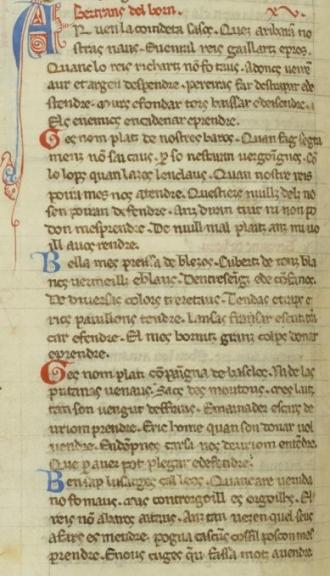 Bertrans del born. XV.
AR ven la coindeta sasos. Que aribaran no
stras naus. E uenral reis gaillartz e pros.
Quanc lo reis richartz nō fo taus. Adoncs veirē
aur et argen despendre. Peireiras far destendre e de
stendre. Murs esfondar tors baissar e deisendre.
Els enemics encadenar e prendre.
Ges nom platz de nostres baros. Quan faig sagra
menz nō sai caus. ꝑ so nestaran uergoignos. Co
lo lops quan lazes lenclaus. Quan nostre reis
poira mes nos atendre. Questiers nuillz dels no
sen poiran defendre. Anz diran tuit mi non po
dom mesprendre. De nuill mal plait anz mi uo
ill auos rendre.
Bella mes preissa de blezos. Cuberti de teinz bla
nes uermeills e blaus. Dentreseinz e de cōfanos.
De diuersas colors tretaus. Tendas e traps e
rics paueillons tendre. Lansas frassar escutz tra
car e fendre. El mes brunitz e grans colps donar
e prendre.
Ges nom platz cōpaigna de basclos. Ni de las
putanas uenaus. Sacs des moutons. mes laitz
tan son uengut deffraus. E mainader escars de
uriom prendre. E ric home quan son donar uol
uendre. En dōpnes cars nos deuriom entendre.
Que ꝑ auer pot plegar e desendre.
Bensap lusatges cal leos. Quancare uencuda
no fo maus. Mas controrgoill es orgoillos. El
reis nō abaros aitaus. Anz tan ueren quel seus
afars es mendre. poigna cascus cossil poscon mes
prendre. E nous cuges qu fassa mot auendre